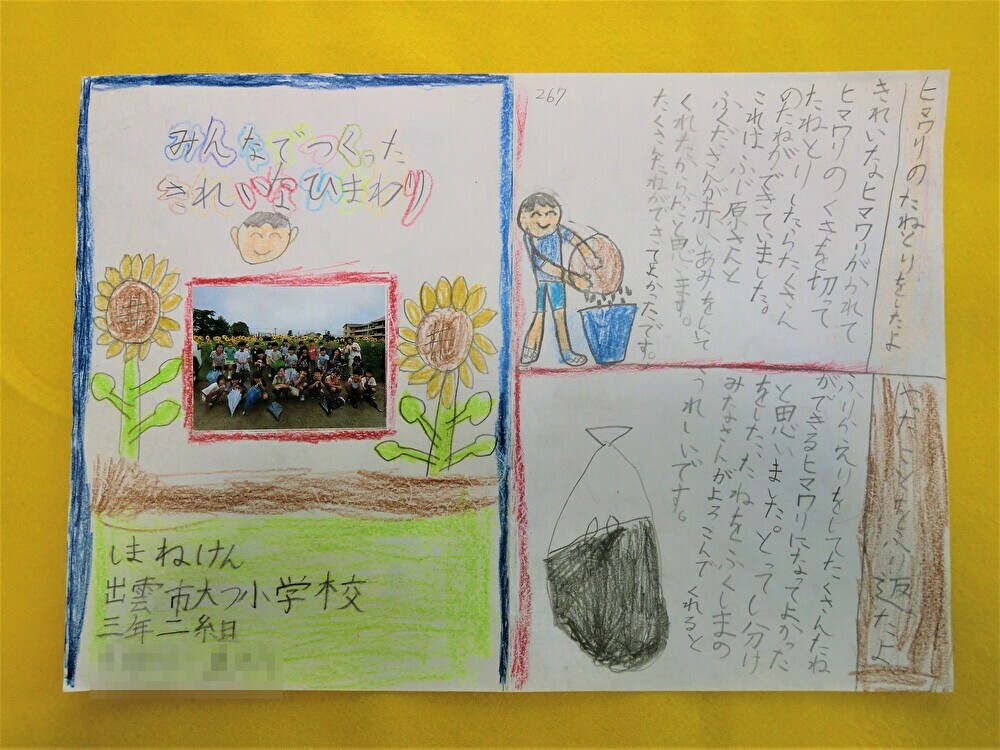 みんなでつくった
きれいなひまわり
しまねけん
出雲市大つ小学校
三年二組
267
ヒマワリのたねとりをしたよ
きれいなヒマワリがかれて
ヒマワリのくきを切って
たねとりしたらたくさん
のたねができていました。
これは、ふじ原さんと
ふくださんが赤いあみをして
くれたからだと思います。
たくさんたねができてよかったです。
やったことをふり返ったよ
ふりかえりをしてたくさんたね
ができるヒマワリになってよかった
と思いました。とってし分け
をしたたねをふくしまの
みなさんがよろこんでくれると
うれしいです。